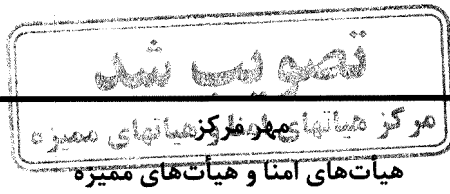 تصویب شد
مرکز هیأتهای امنا و هیأتهای ممیزه
مهر مرکز
هیأت‌های امنا و هیأت‌های ممیزه